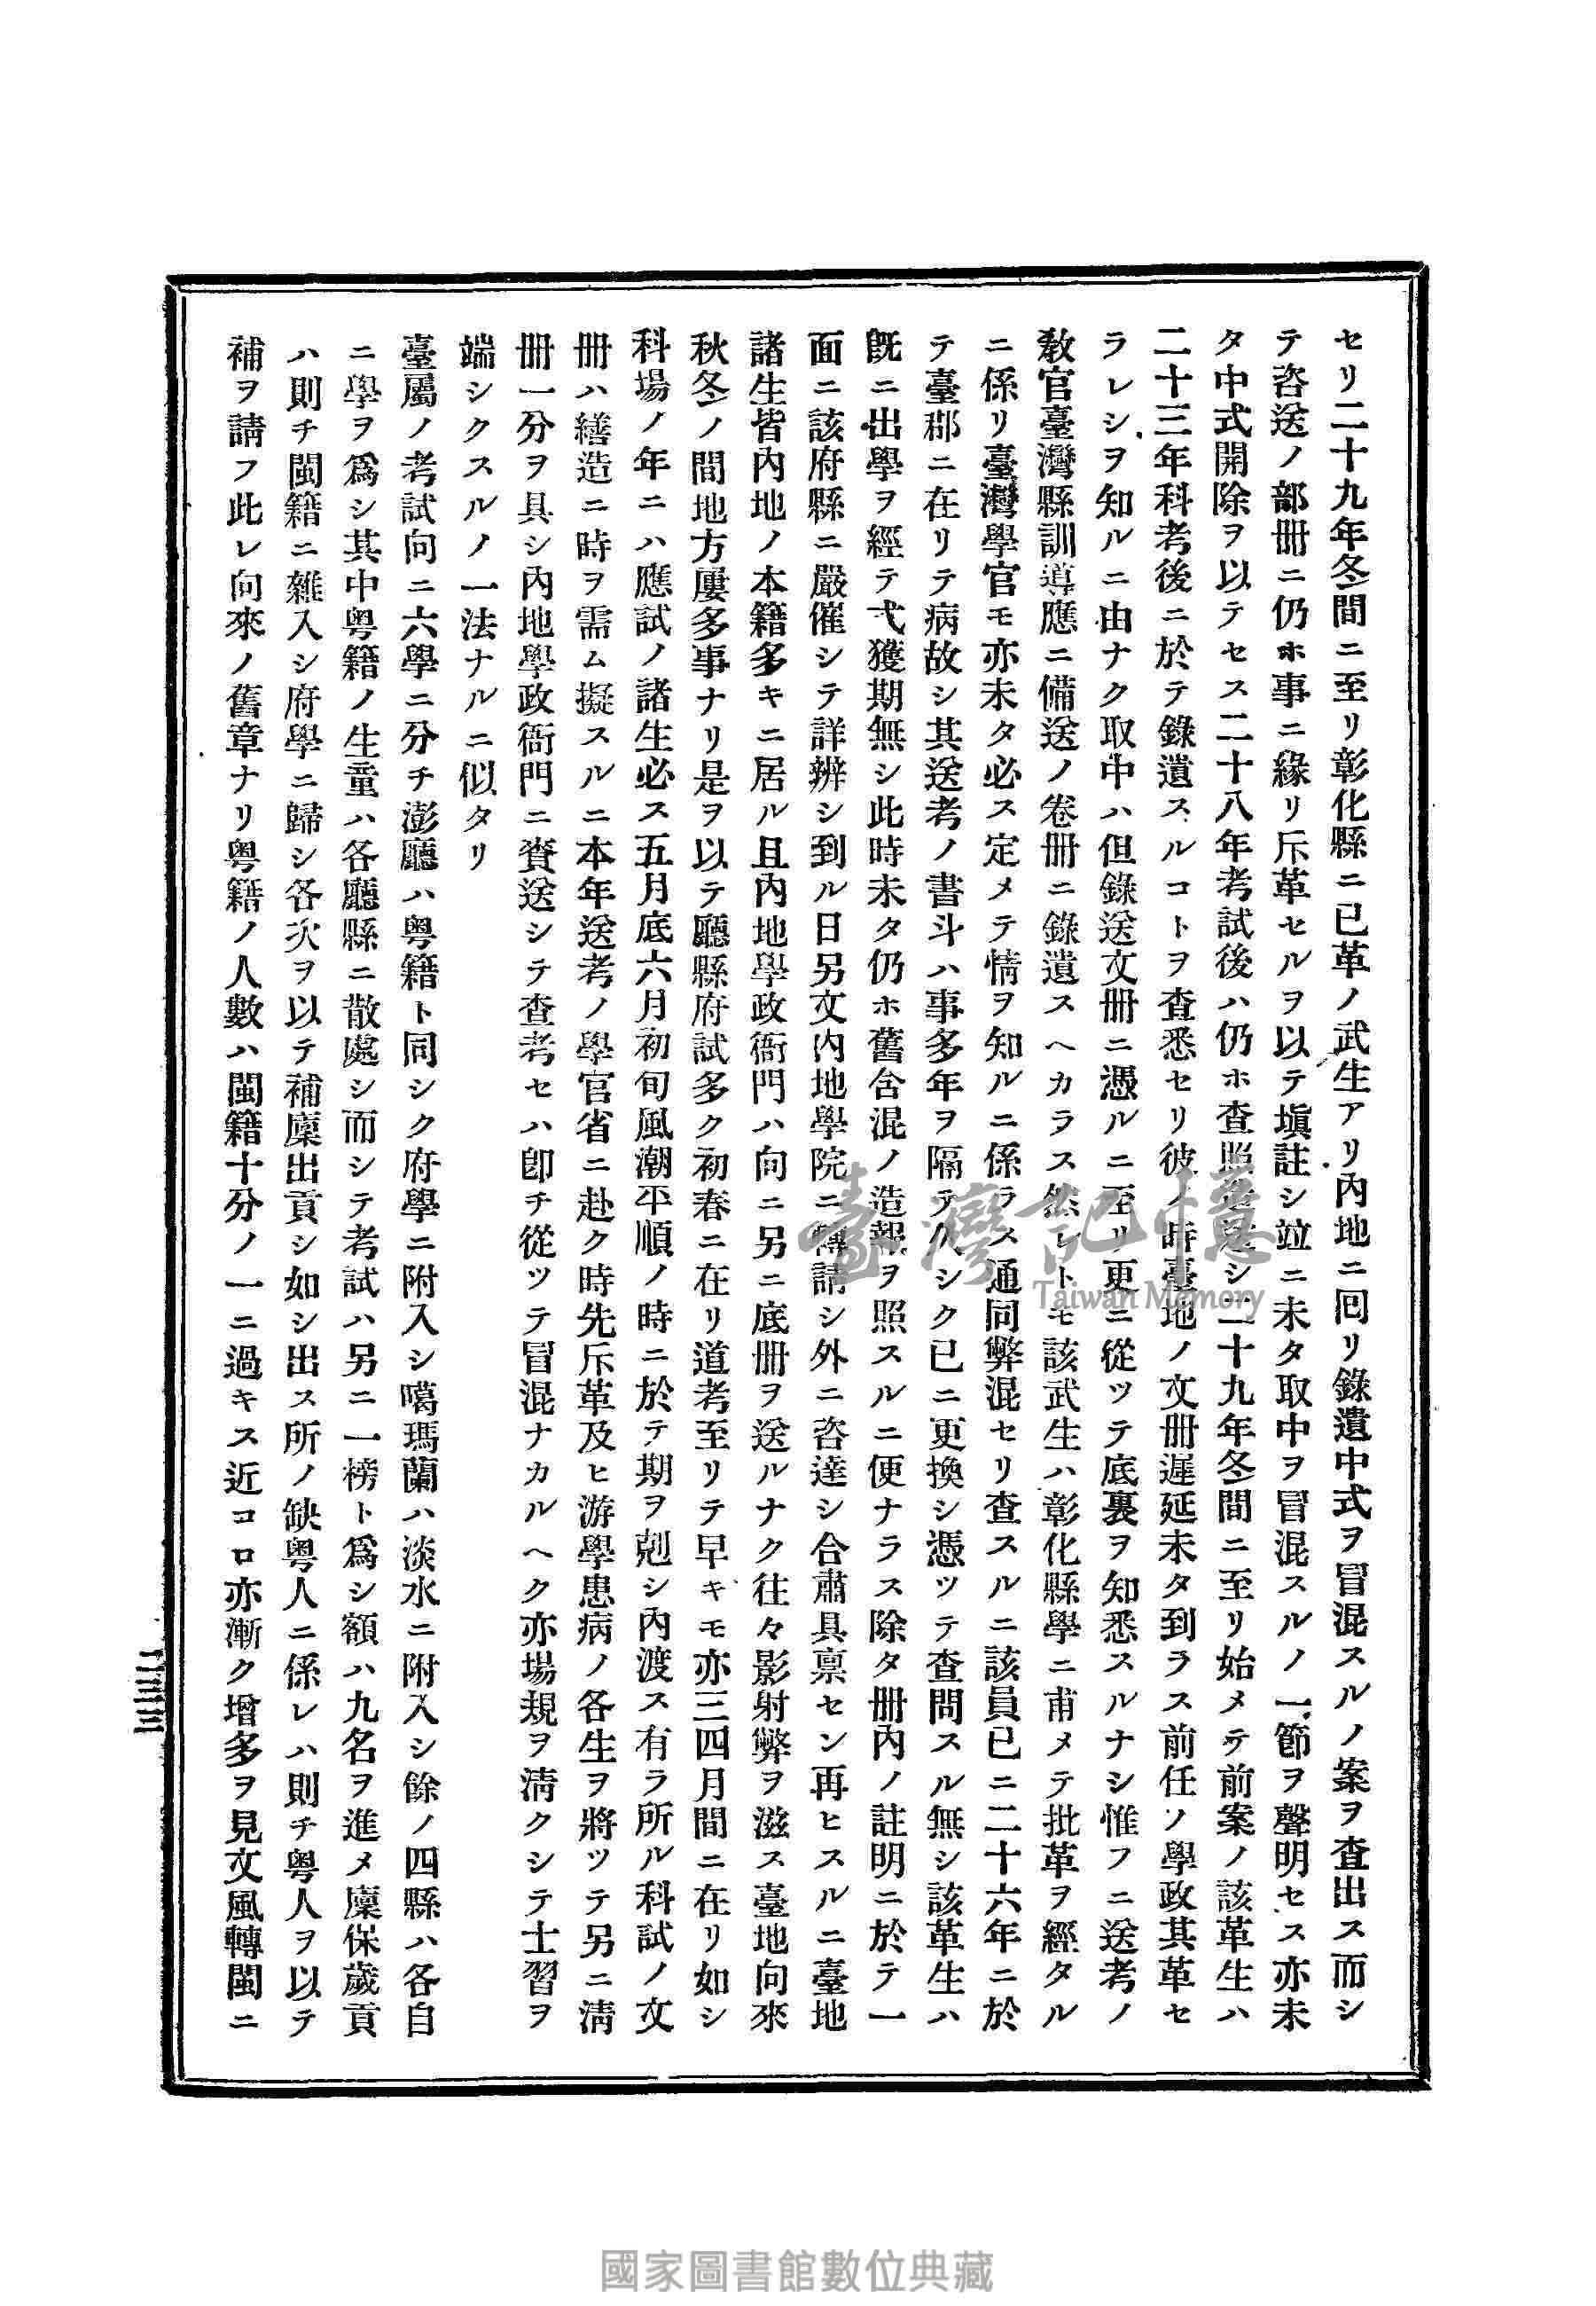 セリ二十九年冬間ニ至リ彰化縣ニ已革ノ武生アリ內地ニ回リ錄遺中式ヲ冒混スルノ案ヲ査出ス而シ
テ咨送ノ部冊ニ仍ホ事ニ緣リ斥革セルヲ以テ塡註シ竝ニ未タ取中ヲ冒混スルノ一節ヲ聲明セス亦未
タ中式開除ヲ以テセス二十八年考試後ハ仍ホ查照造送シ二十九年冬間ニ至リ始メテ前案ノ該革生ハ
二十三年科考後ニ於テ錄遺スルコトヲ査悉セリ彼ノ時臺地ノ文冊遲延未タ到ラス前任ノ學政其革セ
ラレシヲ知ルニ由ナク取中ハ但錄送文冊ニ憑ルニ至リ更ニ從ツテ底裏ヲ知悉スルナシ惟フニ送考ノ
敎官臺灣縣訓導應ニ備送ノ卷冊ニ錄遺スヘカラス然レトモ該武生ハ彰化縣學ニ甫メテ批革ヲ經タル
ニ係リ臺灣學官モ亦未タ必ス定メテ情ヲ知ルニ係ラス通同弊混セリ査スルニ該員已ニ二十六年ニ於
テ臺郡ニ在リテ病故シ其送考ノ書斗ハ事多年ヲ隔テ久シク已ニ更換シ憑ツテ査問スル無シ該革生ハ
旣ニ出學ヲ經テ弋獲期無シ此時未タ仍ホ舊含混ノ造報ヲ照スルニ便ナラス除タ冊內ノ註明ニ於テ一
面ニ該府縣ニ嚴催シテ詳辨シ到ル日另文內地學院ニ轉請シ外ニ咨達シ合肅具稟セン再ヒスルニ臺地
諸生皆內地ノ本籍多キニ居ル且內地學政衙門ハ向ニ另ニ底冊ヲ送ルナク往々影射弊ヲ滋ス臺地向來
秋冬ノ間地方屢多事ナリ是ヲ以テ廳縣府試多ク初春ニ在リ道考至リテ早キモ亦三四月間ニ在リ如シ
科場ノ年ニハ應試ノ諸生必ス五月底六月初旬風潮平順ノ時ニ於テ期ヲ剋シ內渡ス有ラ所ル科試ノ文
冊ハ繕造ニ時ヲ需ム擬スルニ本年送考ノ學官省ニ赴ク時先斥革及ヒ游學患病ノ各生ヲ將ツテ另ニ淸
冊一分ヲ具シ內地學政衙門ニ賫送シテ査考セハ卽チ從ツテ冒混ナカルヘク亦場規ヲ淸クシテ士習ヲ
端シクスルノ一法ナルニ似タリ
臺屬ノ考試向ニ六學ニ分チ澎廳ハ粤籍ト同シク府學ニ附入シ噶瑪蘭ハ淡水ニ附入シ餘ノ四縣ハ各自
ニ學ヲ爲シ其中粤籍ノ生童ハ各廳縣ニ散處シ而シテ考試ハ另ニ一榜ト爲シ額ハ九名ヲ進メ廩保歲貢
ハ則チ閩籍ニ雜入シ府學ニ歸シ各次ヲ以テ補廩出貢シ如シ出ス所ノ缺粤人ニ係レハ則チ粤人ヲ以テ
補ヲ請フ此レ向來ノ舊章ナリ粤籍ノ人數ハ閩籍十分ノ一ニ過キス近コロ亦漸ク增多ヲ見文風轉閩ニ
二三三
臺灣記憶
Taiwan Memory
國家圖書館數位典藏